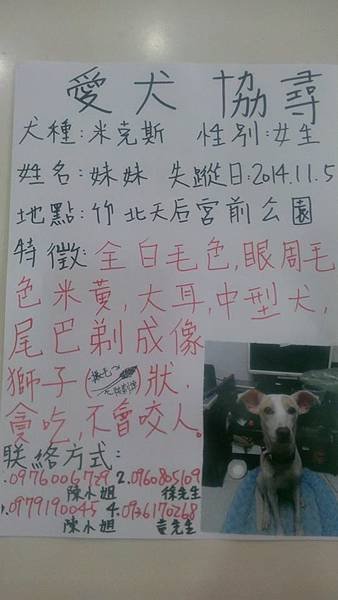 愛犬 協尋
犬種:米克斯 性別:女生
姓名:妹妹 失蹤日:2014.11.5
地點:竹北天后宮前公園
特徵:全白毛色,眼周毛
色米黃,大耳,中型犬,
尾巴剃成像
獅子( )狀,
貪吃,不會咬人。
聯絡方式:
1.0976006729 2.0960805109
陳小姐 徐先生
3.0979190045 4.0936170268
陳小姐 黃先生